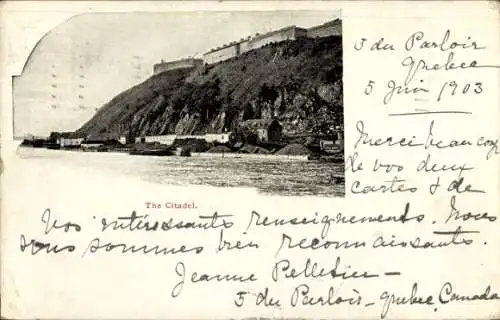 5 du Parloir
Quebec
5 Juin 1903
Merci beaucoup
de vos deux
cartes & de
The Citadel.
Vos intéressants renseignements. Nous
vous sommes bien reconnaissants.
Jeanne Pelletier –
5 du Parloir – Quebec, Canada